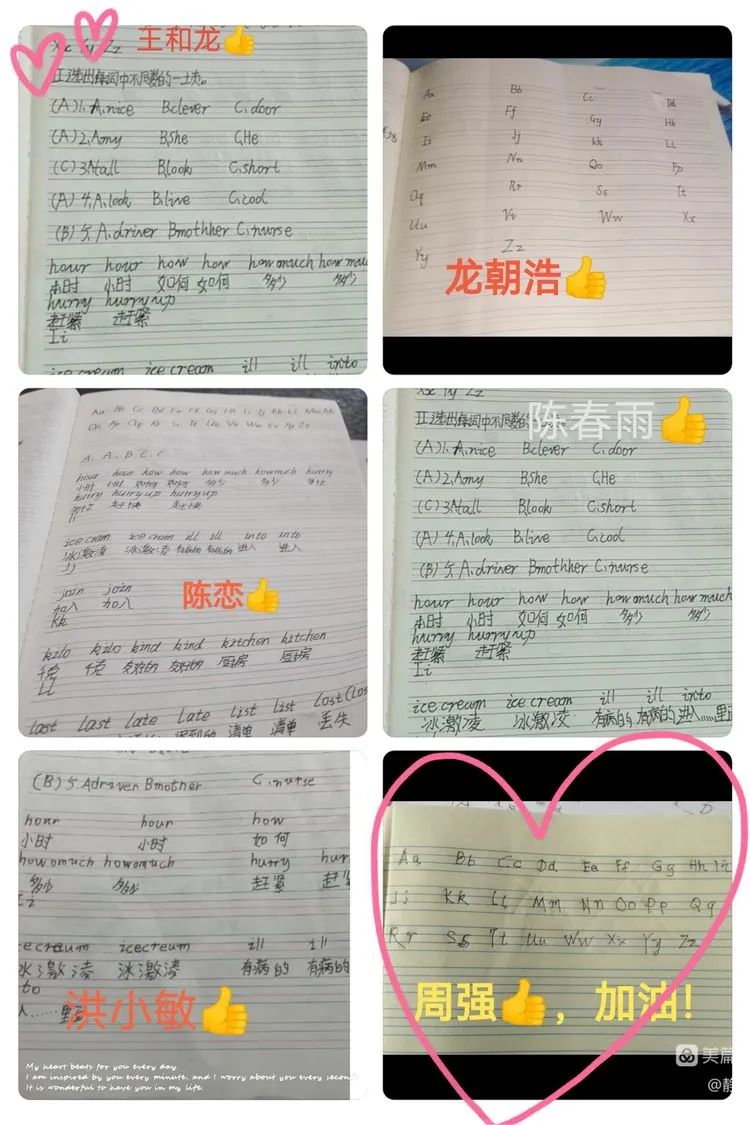 王和龙
Xx Yy Zz
II选出单词中不同数的一项。
(A)1.A.nice B.clever C.door
(A)2.A.my B.She C.He
(C)3.A.tall B.look C.short
(A)4.A.look B.live C.cool
(B)5.A.driver B.mothher C.nurse
hour hour how how how much how mu
小时 小时 如何 如何 多少 多少
hurry hurry up
赶紧 赶紧
Ii
ice cream ice cream ill ill into
Aa Bb Cc Dd
Ee Ff Gg Hh
Ii Jj Kk LL
Mm Nn Oo Pp
Qq Rr Ss Tt
Uu Vv Ww Xx
Yy Zz
龙朝浩
A. A. B. C. C
hour hour how how how much how much hurry
小时 小时 如何 如何 多少 多少
hurry hurry up hurry up
Ii
ice cram ice cream ill ill into into
冰激凌 冰激凌 有病的 有病的 进入 进入
Jj
join join
加入 加入
Kk
kilo kilo kind kind kitchen kitchen
千克 千克 友好的 友好的 厨房 厨房
Ll
last last late late list list lost(los
迟到的 清单 清单 丢失
陈恋
Xx Yy Zz
II选出单词中不同数的
陈春雨
(A)1.A.nice B.clever C.door
(A)2.A.my B.She C.He
(C)3.A.tall B.look C.short
(A)4.A.look B.live C.cool
(B)5.A.driver B.mothher C.nurse
hour hour how how how much how much
小时 小时 如何 如何 多少 多少
hurry hurry up
赶紧 赶紧
Ii
ice cream ice cream ill ill into
冰激凌 冰激凌 有病的 有病的 进入……里面
(B)5.A.driver B.mother C.nurse
hour hour how
小时 小时 如何
howomuch howomuch hurry hurr
多少 多少 赶紧 赶紧
Ii
cecreaum icecreum ill ill
冰激凌 冰激凌 有病的 有病的
to
人……里面
洪小敏
My heart beats for you every day.
I am inspired by you every minute, and I worry about you every second.
It is wonderful to have you in my life.
Aa Bb Cc Dd Ee Ff Gg Hh Ii
Jj Kk LL Mm Nn Oo Pp Qq
Rr Ss Tt Uu Ww Xx Yy Zz
周强，加油！
美篇
@静